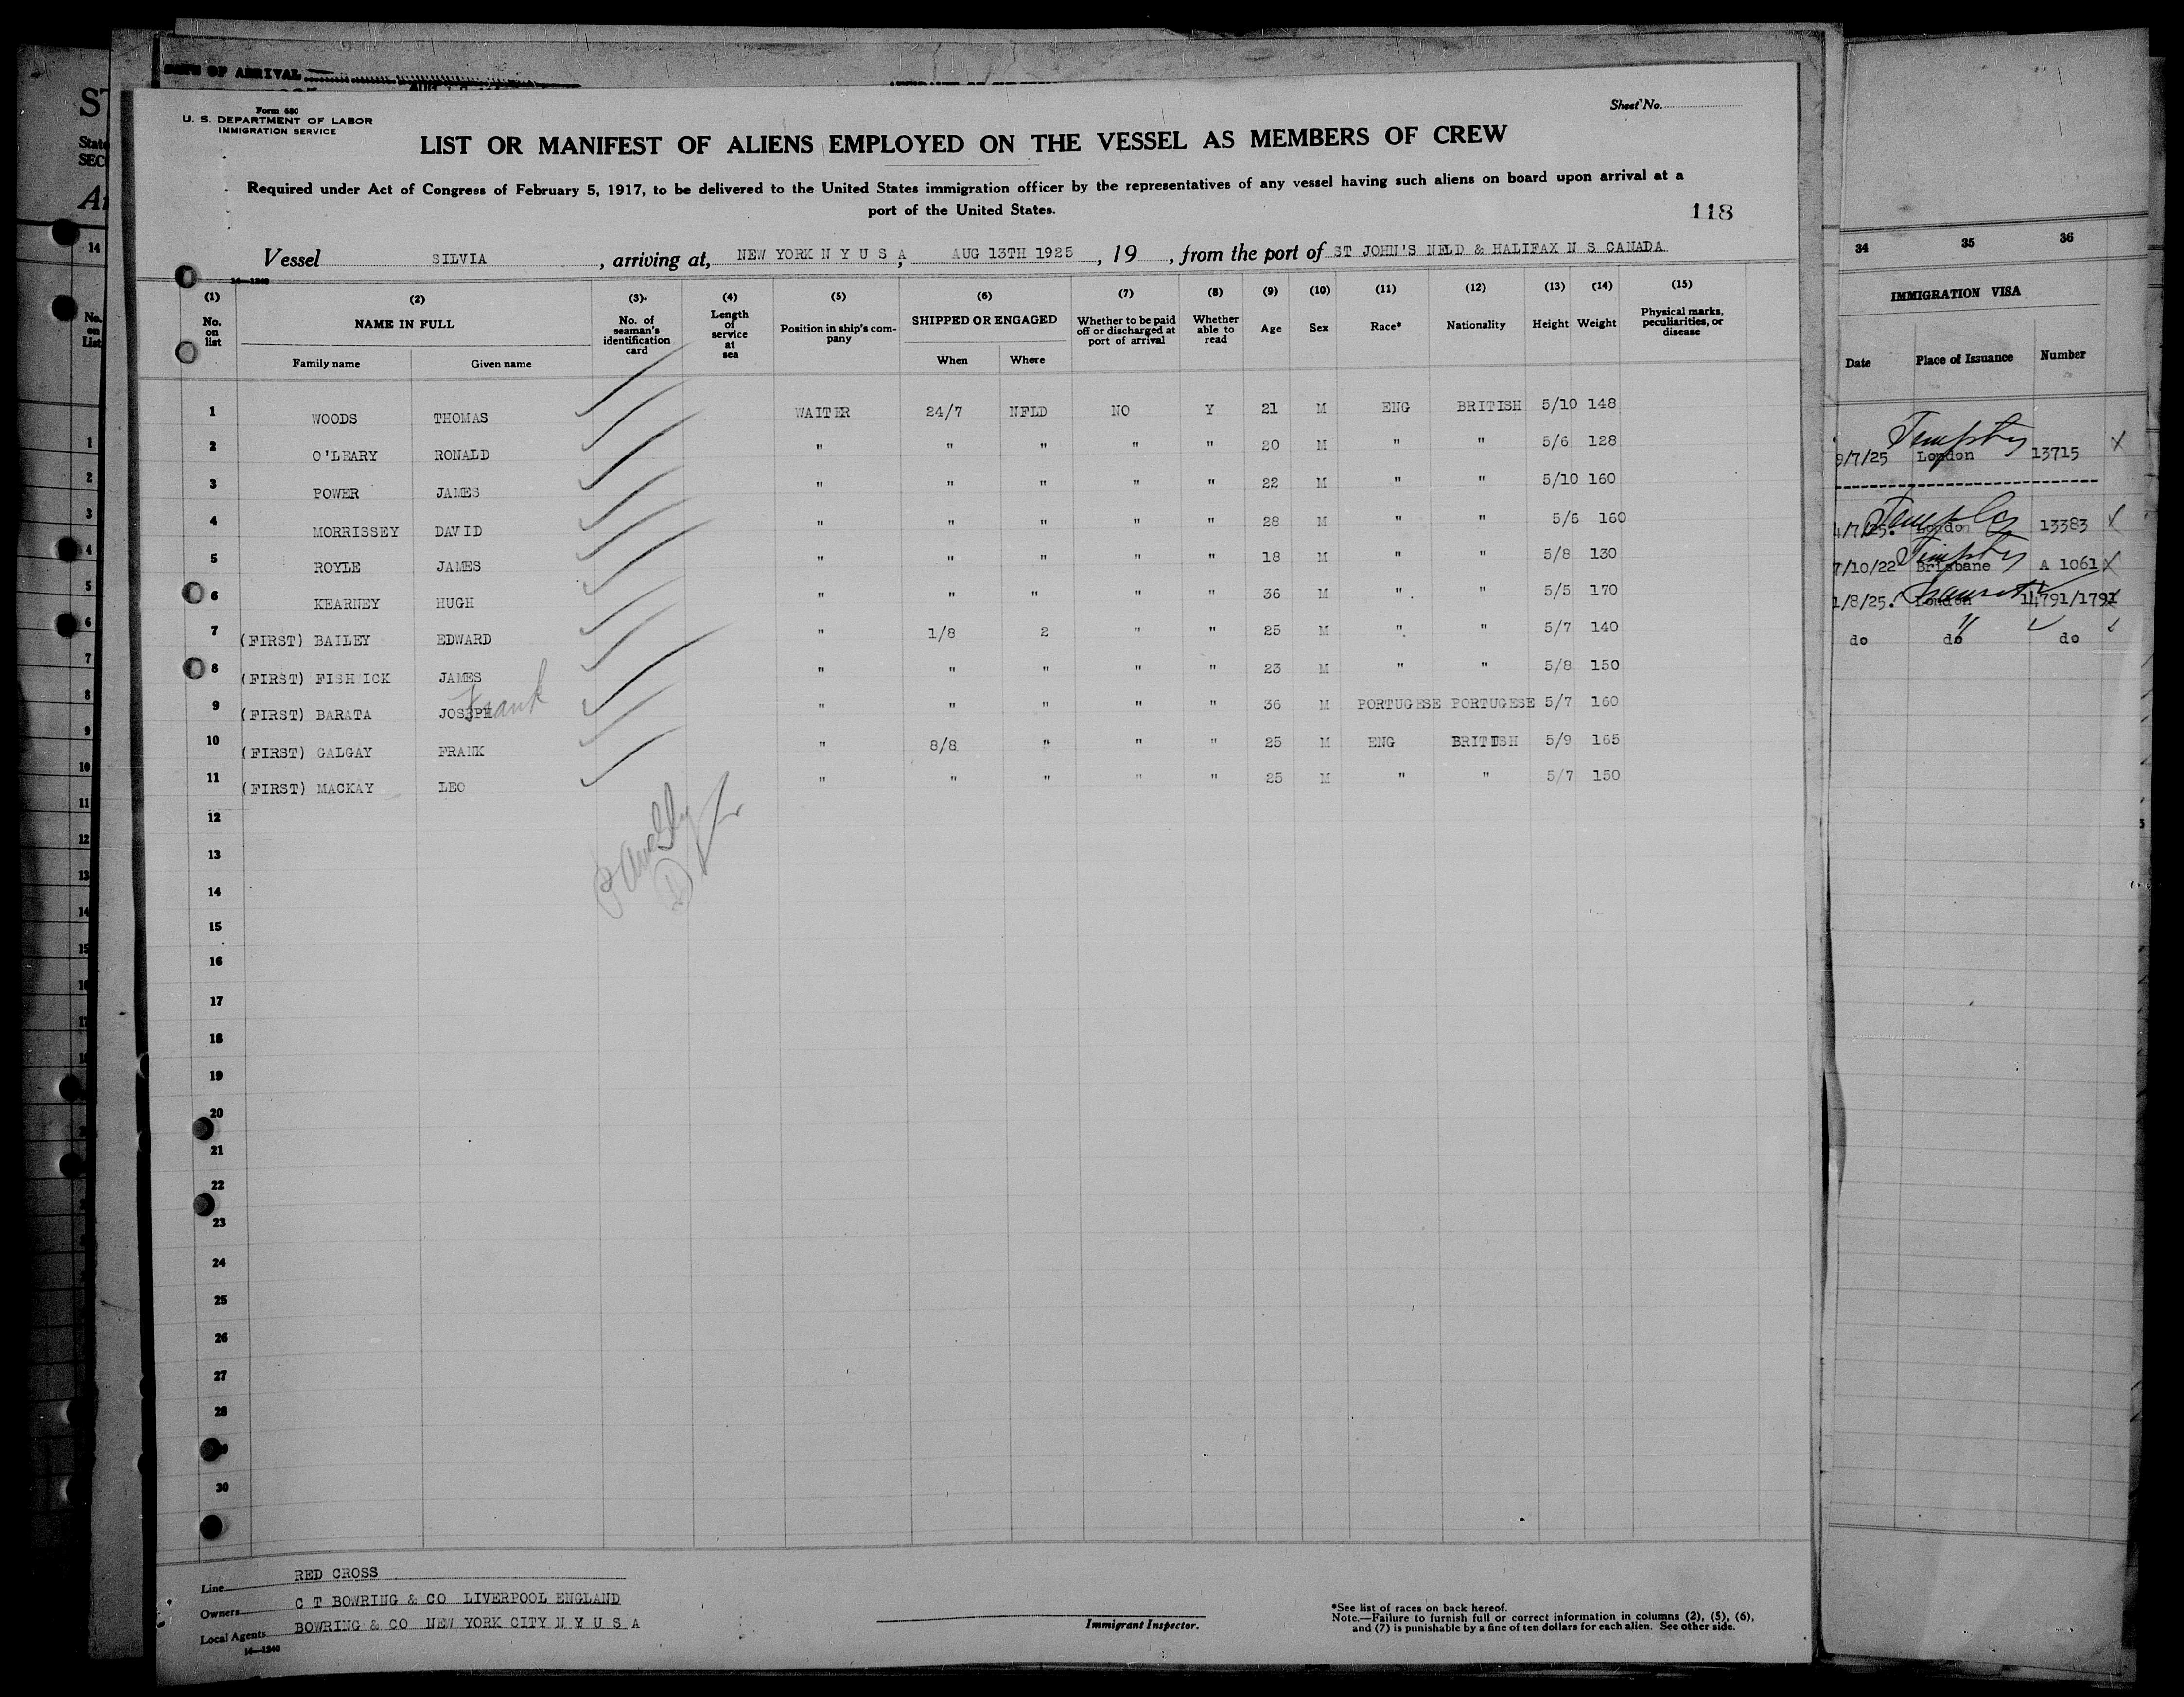 DATE OF ARRIVAL
Form 680
U. S. DEPARTMENT OF LABOR
IMMIGRATION SERVICE
Sheet No.
LIST OR MANIFEST OF ALIENS EMPLOYED ON THE VESSEL AS MEMBERS OF CREW
Required under Act of Congress of February 5, 1917, to be delivered to the United States immigration officer by the representatives of any vessel having such aliens on board upon arrival at a
port of the United States.
118
Vessel SILVIA , arriving at, NEW YORK N Y U S A , AUG 13TH 1925 , 19 , from the port of ST JOHN'S NFLD & HALIFAX N S CANADA
14—1240
(1) (2) (3) (4) (5) (6) (7) (8) (9) (10) (11) (12) (13) (14) (15)
No. on list NAME IN FULL No. of seaman's identification card Length of service at sea Position in ship's company SHIPPED OR ENGAGED Whether to be paid off or discharged at port of arrival Whether able to read Age Sex Race* Nationality Height Weight Physical marks, peculiarities, or disease
Family name Given name When Where
1 WOODS THOMAS WAITER 24/7 NFLD NO Y 21 M ENG BRITISH 5/10 148
2 O'LEARY RONALD " " " " " 20 M " " 5/6 128
3 POWER JAMES " " " " " 22 M " " 5/10 160
4 MORRISSEY DAVID " " " " " 28 M " " 5/6 160
5 ROYLE JAMES " " " " " 18 M " " 5/8 130
6 KEARNEY HUGH " " " " " 36 M " " 5/5 170
7 (FIRST) BAILEY EDWARD " 1/8 2 " " 25 M " " 5/7 140
8 (FIRST) FISHWICK JAMES " " " " " 23 M " " 5/8 150
9 (FIRST) BARATA JOSEPH Frank " " " " " 36 M PORTUGESE PORTUGESE 5/7 160
10 (FIRST) GALGAY FRANK " 8/8 " " " 25 M ENG BRITISH 5/9 165
11 (FIRST) MACKAY LEO " " " " " 25 M " " 5/7 150
12
13
14
15
16
17
18
19
20
21
22
23
24
25
26
27
28
30
Line RED CROSS
Owners C T BOWRING & CO LIVERPOOL ENGLAND
Local Agents BOWRING & CO NEW YORK CITY N Y U S A
14—1240
Immigrant Inspector.
*See list of races on back hereof.
Note.—Failure to furnish full or correct information in columns (2), (5), (6),
and (7) is punishable by a fine of ten dollars for each alien. See other side.
34 35 36
IMMIGRATION VISA
Date Place of Issuance Number
9/7/25 London 13715
4/7/25. London 13383
7/10/22 Brisbane A 1061
1/8/25. London 14791/1791
do do do